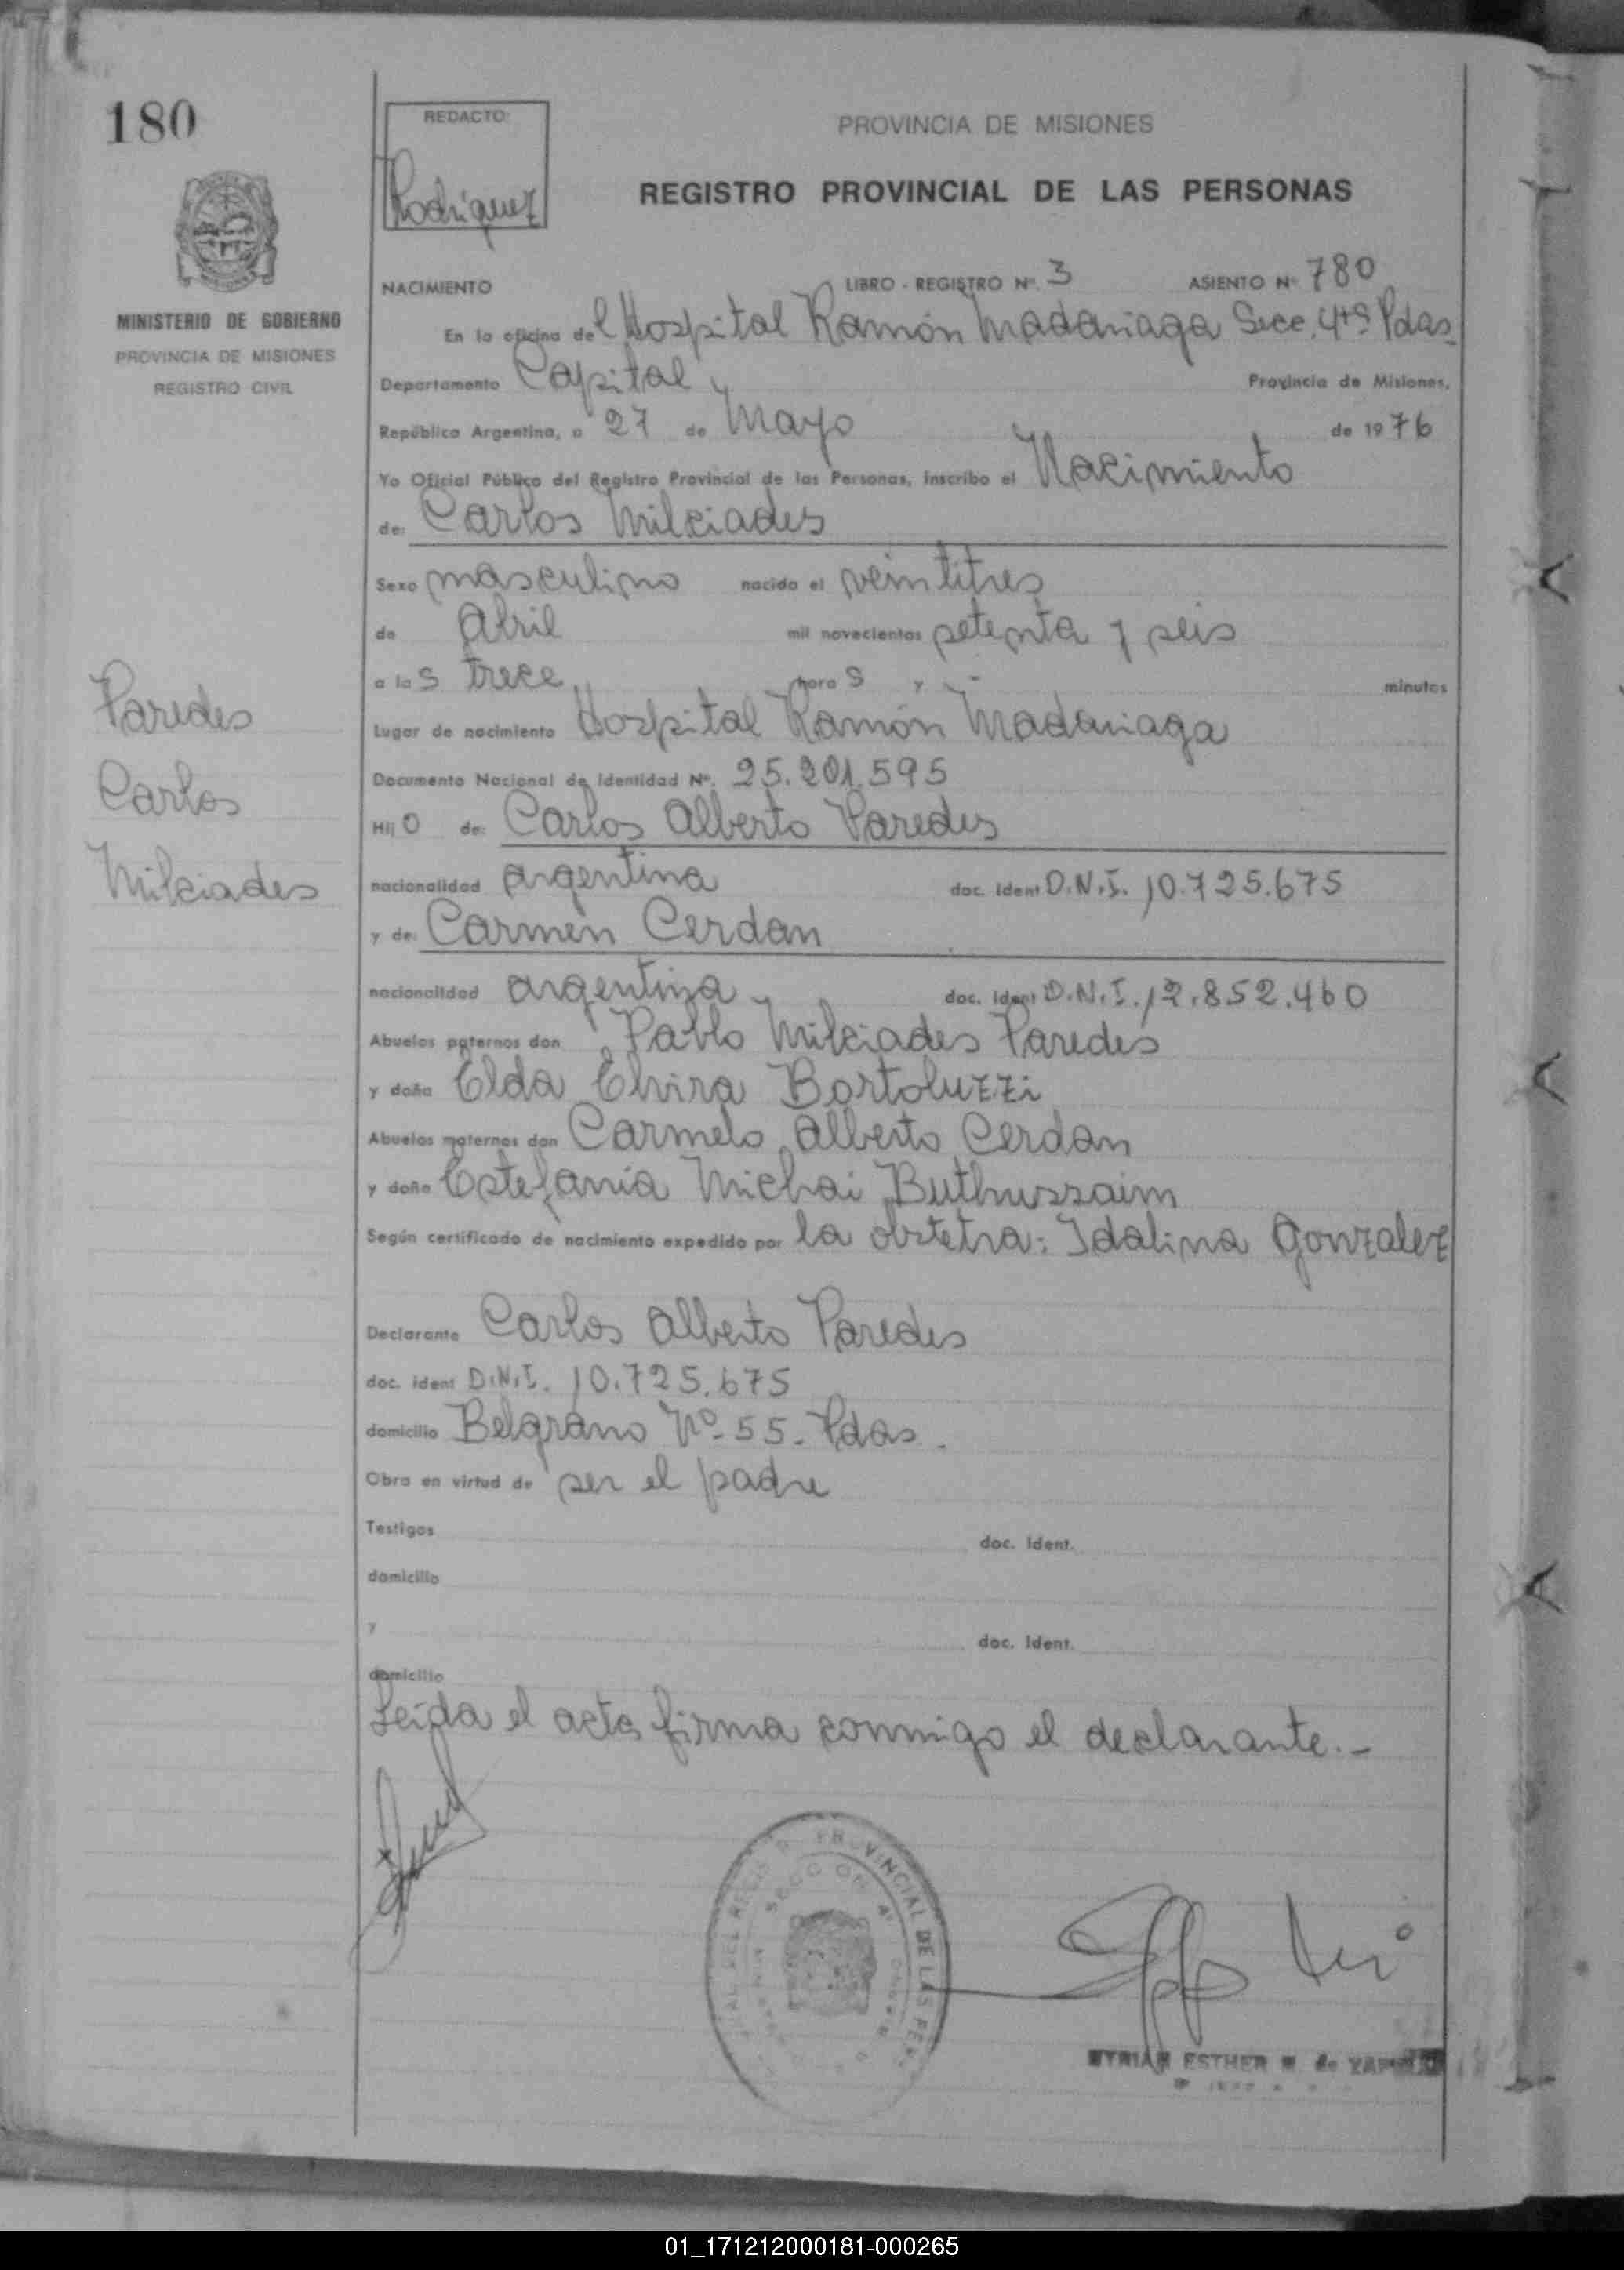 180
REDACTO:
Rodriguez
PROVINCIA DE MISIONES
REGISTRO PROVINCIAL DE LAS PERSONAS
MINISTERIO DE GOBIERNO
PROVINCIA DE MISIONES
REGISTRO CIVIL
NACIMIENTO LIBRO - REGISTRO Nº. 3 ASIENTO Nº 780
En la oficina del Hospital Ramón Madariaga Secc. 4ta Pdas.
Departamento Capital Provincia de Misiones,
República Argentina, a 27 de Mayo de 1976
Yo Oficial Público del Registro Provincial de las Personas, inscribo el Nacimiento
de: Carlos Milciades
Sexo masculino nacido el veintitres
de Abril mil novecientos setenta y seis
a las trece horas y - minutos
Lugar de nacimiento Hospital Ramón Madariaga
Documento Nacional de Identidad Nº. 25.201.595
Hijo de: Carlos Alberto Paredes
nacionalidad argentina doc. Ident D.N.I. 10.725.675
y de: Carmen Cerdan
nacionalidad argentina doc. Ident D.N.I. 12.852.460
Abuelos paternos don Pablo Milciades Paredes
y doña Elda Elvira Bortoluzzi
Abuelos maternos don Carmelo Alberto Cerdan
y doña Estefanía Michai Buthussaim
Según certificado de nacimiento expedido por la obstetra: Idalina Gonzalez
Paredes
Carlos
Milciades
Declarante Carlos Alberto Paredes
doc. ident D.N.I. 10.725.675
domicilio Belgrano Nº 55. Pdas.
Obra en virtud de ser el padre
Testigos doc. Ident.
domicilio
y doc. Ident.
domicilio
Leída el acta firma conmigo el declarante.-
PROVINCIAL DE LAS
ESTHER
01_171212000181-000265